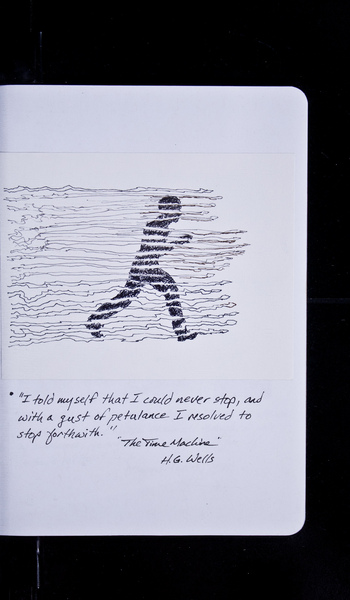 • "I told myself that I could never stop, and
with a gust of petulance I resolved to
stop forthwith."
"The Time Machine"
H.G. Wells